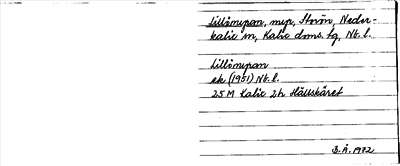 Lillömyran, myr, Storön, Neder-
kalix sn, Kalix doms. tg, Nb. l.
Lillömyran
ek (1951) Nb. l.
25 M Kalix 2h Hällskäret
B. Å. 1972